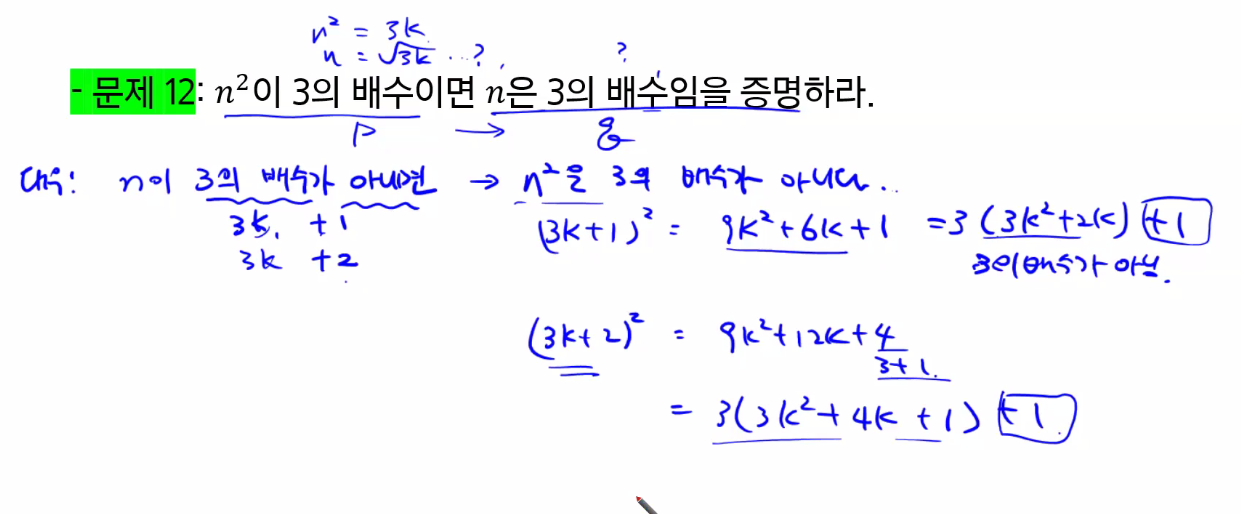 n² = 3k
n = √3k ...?, ?
- 문제 12: n²이 3의 배수이면 n은 3의 배수임을 증명하라.
P → Q
대우: n이 3의 배수가 아니면 → n²은 3의 배수가 아니다..
3k, +1 (3k+1)² = 9k²+6k+1 = 3(3k²+2k)+1
3k +2 3의 배수가 아님.
(3k+2)² = 9k²+12k+4
3+1.
= 3(3k²+4k+1)+1